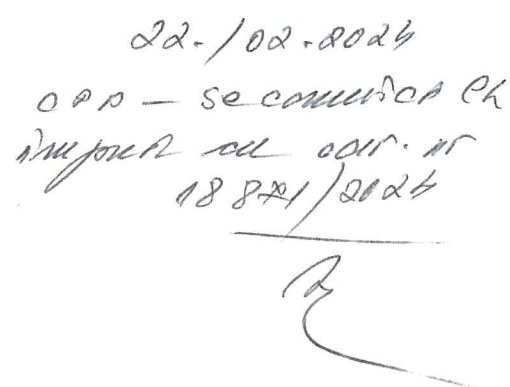 22./02.2024
OPD — se comunică că
împreună cu adr. nr
18871/2024